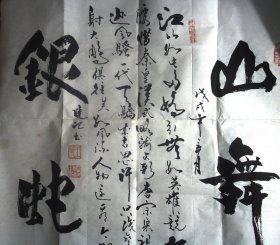 山舞
戊戌年
江山如此多嬌引無數英雄競
腰惜秦皇漢武略輸文彩唐宗宋祖
遜風騷一代天驕成吉思汗只識
射大雕俱往矣數風流人物還看今
銀蛇